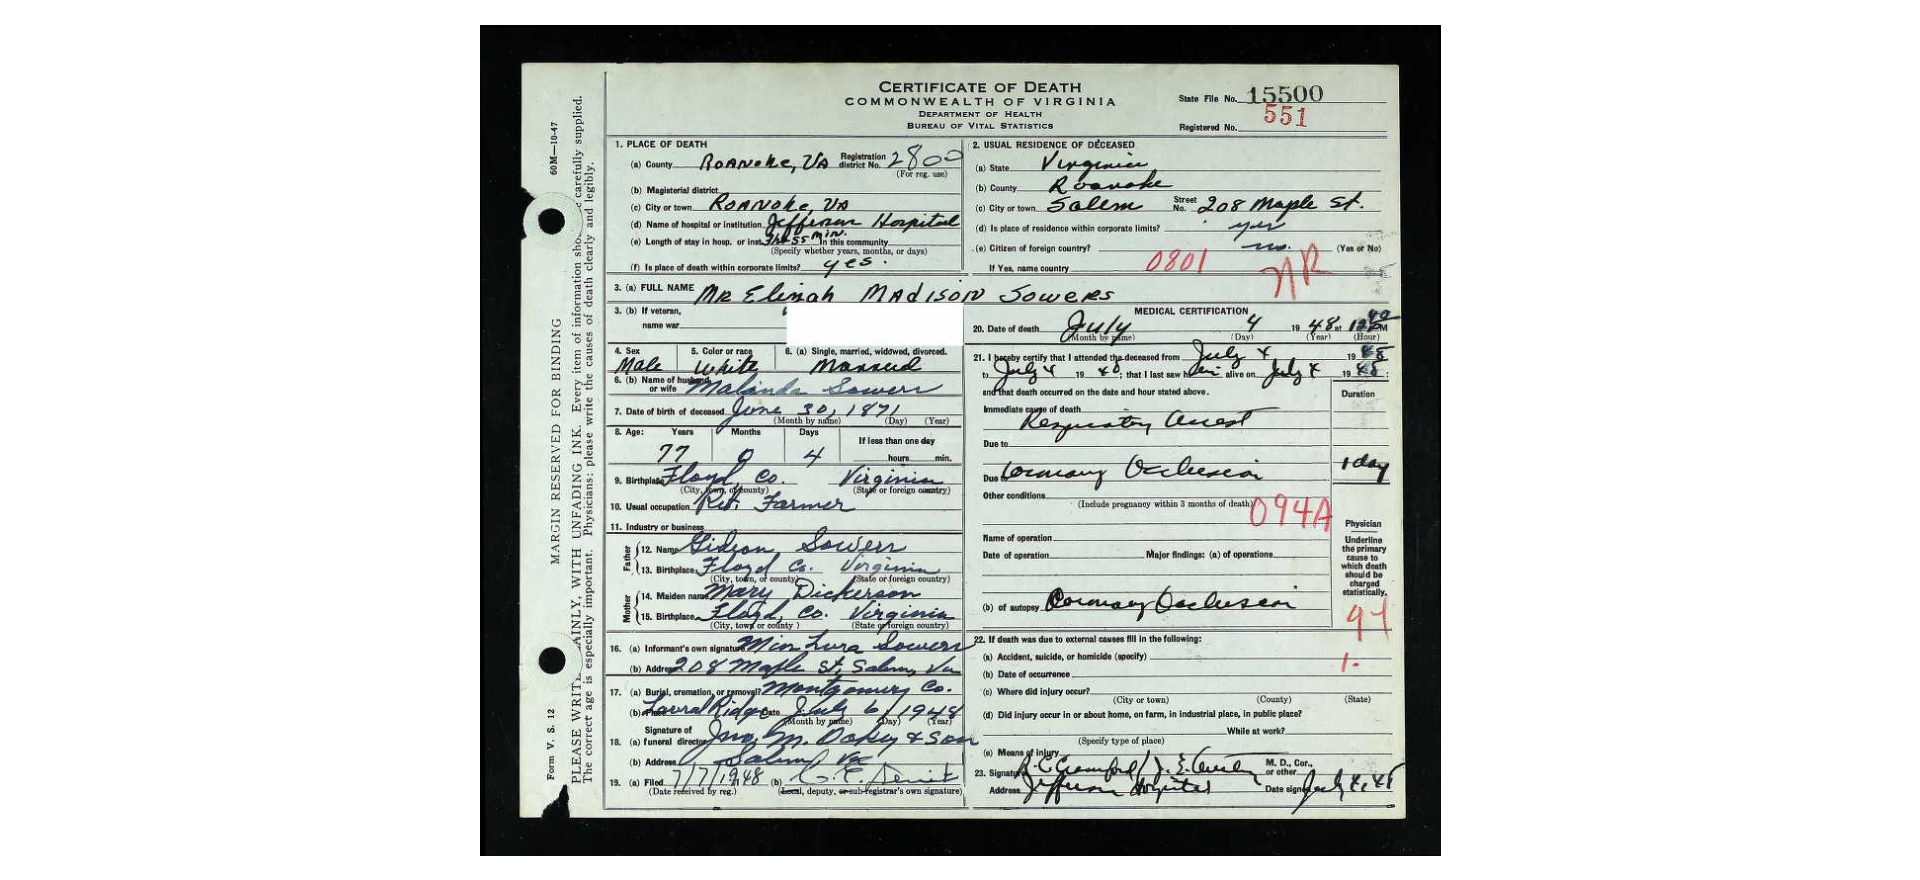 CERTIFICATE OF DEATH
COMMONWEALTH OF VIRGINIA
DEPARTMENT OF HEALTH
BUREAU OF VITAL STATISTICS
State File No. 15500
Registered No. 551
60M—10-47
MARGIN RESERVED FOR BINDING
Form V. S. 12
PLEASE WRITE PLAINLY, WITH UNFADING INK. Every item of information carefully supplied.
The correct age is especially important. Physicians: please write the causes of death clearly and legibly.
1. PLACE OF DEATH
(a) County Roanoke, VA Registration district No. 2800
(For reg. use)
(b) Magisterial district
(c) City or town Roanoke, VA
(d) Name of hospital or institution Jefferson Hospital
(e) Length of stay in hosp. or inst. 55 min. In this community
(Specify whether years, months, or days)
(f) Is place of death within corporate limits? yes.
2. USUAL RESIDENCE OF DECEASED
(a) State Virginia
(b) County Roanoke
(c) City or town Salem Street No. 208 Maple St.
(d) Is place of residence within corporate limits? yes
(e) Citizen of foreign country? no. (Yes or No)
If Yes, name country 0801 NR
3. (a) FULL NAME Mr Elijah Madison Sowers
3. (b) If veteran,
name war
4. Sex 5. Color or race 6. (a) Single, married, widowed, divorced.
Male White Married
6. (b) Name of husband or wife Malinda Sowers
7. Date of birth of deceased June 30, 1871
(Month by name) (Day) (Year)
8. Age: Years Months Days If less than one day
77 0 4 hours min.
9. Birthplace Floyd, Co. Virginia
(City, town, or county) (State or foreign country)
10. Usual occupation Ret. Farmer
11. Industry or business
Father
12. Name Gideon Sowers
13. Birthplace Floyd Co. Virginia
(City, town, or county) (State or foreign country)
Mother
14. Maiden name Mary Dickerson
15. Birthplace Floyd, Co. Virginia
(City, town or county) (State or foreign country)
16. (a) Informant's own signature Miss Lura Sowers
(b) Address 208 Maple St, Salem, Va
17. (a) Burial, cremation, or removal? Montgomery Co.
(b) Place Laurel Ridge Date July 6/1948
(Month by name) (Day) (Year)
Signature of
18. (a) funeral director Jno. M. Oakey & Son
(b) Address Salem Va
19. (a) Filed 7/7/1948 (b)
(Date received by reg.) (Local, deputy, or sub-registrar's own signature)
MEDICAL CERTIFICATION
20. Date of death July 4 1948 at 12 40 M
(Month by name) (Day) (Year) (Hour)
21. I hereby certify that I attended the deceased from July 4 1948
to July 4 1948; that I last saw him alive on July 4 1948;
and that death occurred on the date and hour stated above. Duration
Immediate cause of death
Respiratory Arrest
Due to
Due to Coronary Occlusion 1 day
Other conditions
(Include pregnancy within 3 months of death) 094A
Name of operation
Date of operation Major findings: (a) of operations
(b) of autopsy Coronary Occlusion
Physician
Underline
the primary
cause to
which death
should be
charged
statistically.
94
22. If death was due to external causes fill in the following:
(a) Accident, suicide, or homicide (specify) 1-
(b) Date of occurrence
(c) Where did injury occur?
(City or town) (County) (State)
(d) Did injury occur in or about home, on farm, in industrial place, in public place?
While at work?
(Specify type of place)
(e) Means of injury
23. Signature R. C. Crawford / M. D., Cor., or other
Address Jefferson Hospital Date signed July 4, 48